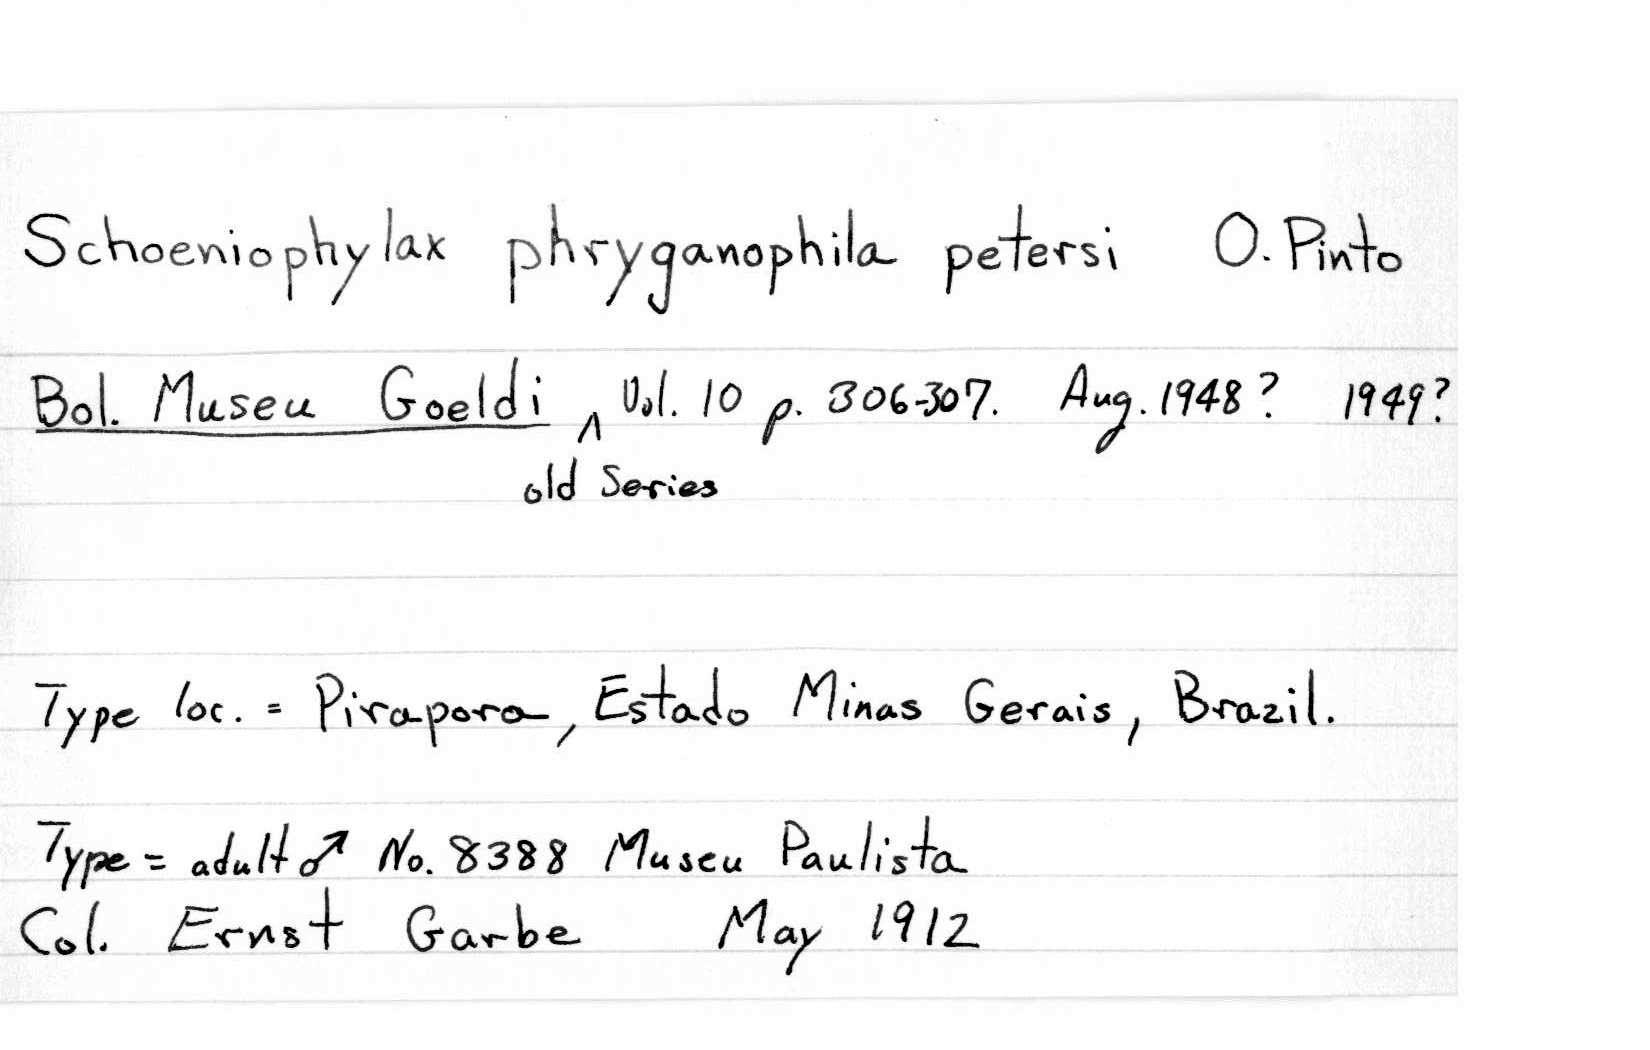 Schoeniophylax phryganophila petersi O. Pinto
Bol. Museu Goeldi ^ Vol. 10 p. 306-307. Aug. 1948? 1949?
old Series
Type loc. = Pirapora, Estado Minas Gerais, Brazil.
Type = adult ♂ No. 8388 Museu Paulista
Col. Ernst Garbe May 1912